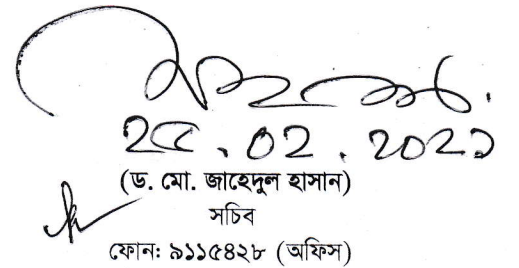 ২৫.০২.২০২১
(ড. মো. জাহেদুল হাসান)
সচিব
ফোনঃ ৯১১৫৪২৮ (অফিস)